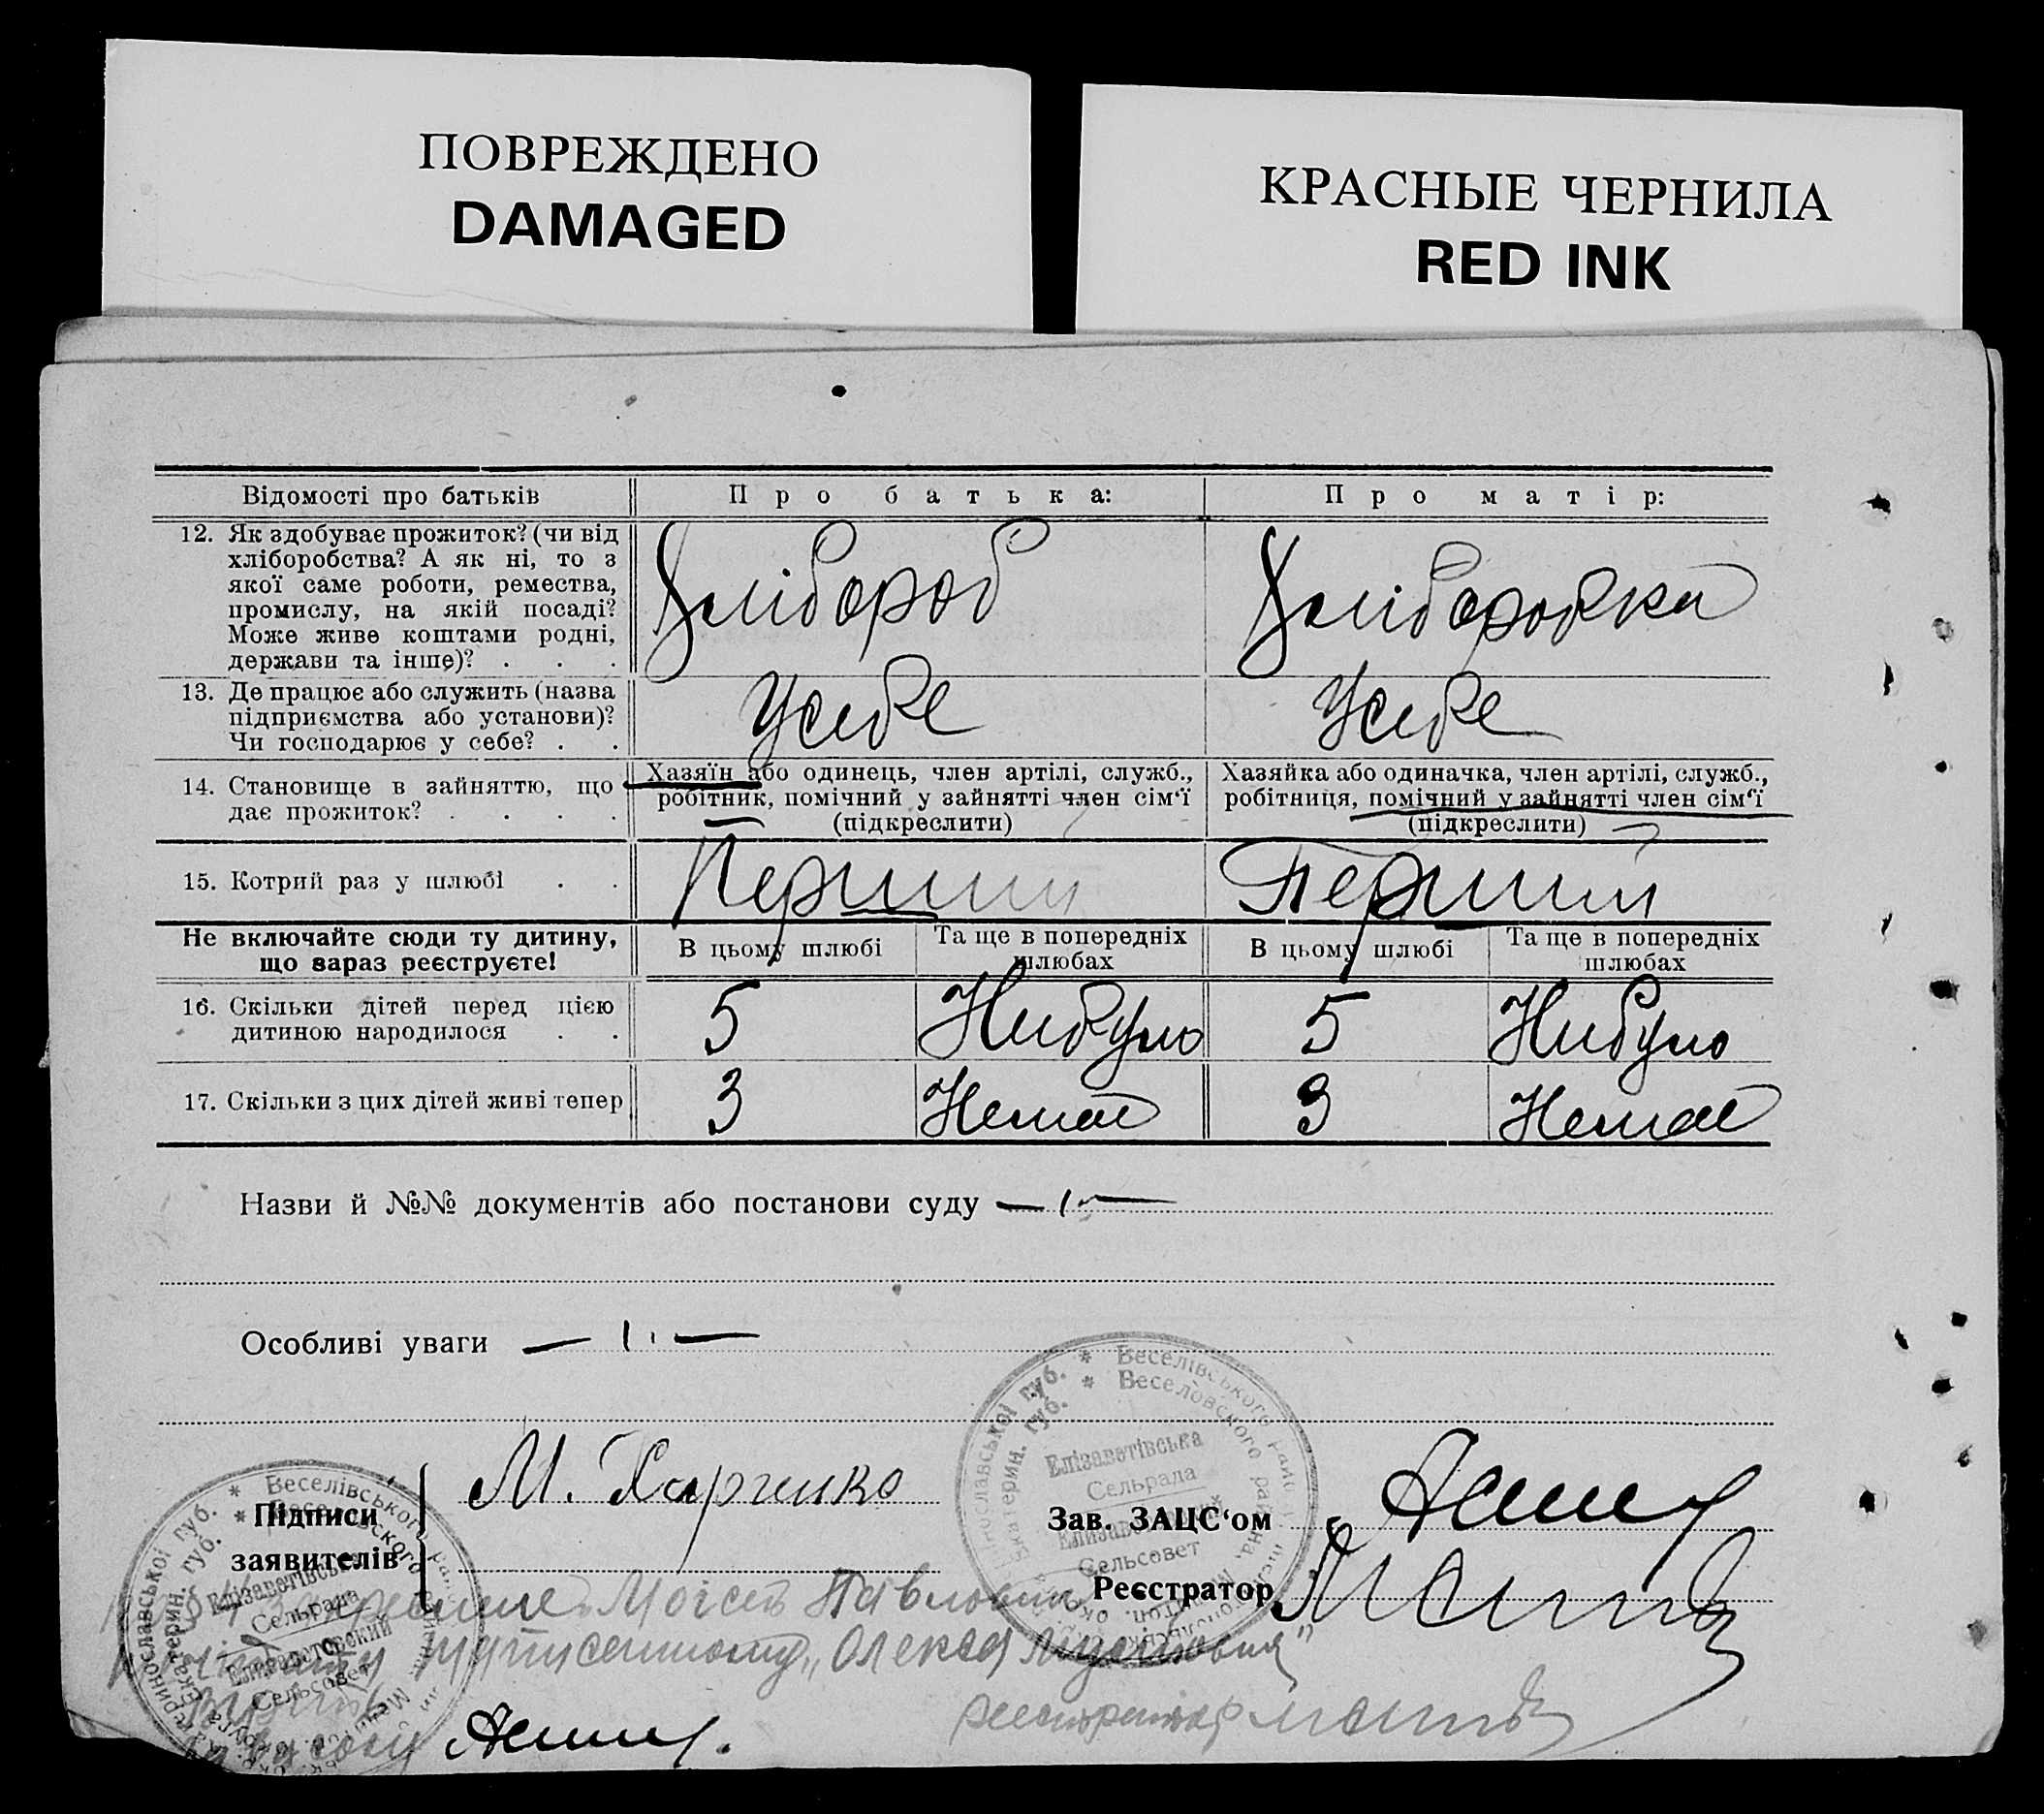 ПОВРЕЖДЕНО
DAMAGED
КРАСНЫЕ ЧЕРНИЛА
RED INK
Відомості про батьків
Про батька:
Про матір:
12. Як здобуває прожиток? (чи від
хліборобства? А як ні, то з
якої саме роботи, ремества,
промислу, на якій посаді?
Може живе коштами родні,
держави та інше)? . . .
Хлібороб
Хліборобка
13. Де працює або служить (назва
підприємства або установи)?
Чи господарює у себе? . .
У себе
У себе
14. Становище в зайняттю, що
дає прожиток? . . . .
Хазяїн або одинець, член артілі, служб.,
робітник, помічний у зайнятті член сім'ї
(підкреслити)
Хазяйка або одиначка, член артілі, служб.,
робітниця, помічний у зайнятті член сім'ї
(підкреслити)
15. Котрий раз у шлюбі . .
Перший
Перший
Не включайте сюди ту дитину,
що зараз реєструєте!
В цьому шлюбі
Та ще в попередніх
шлюбах
В цьому шлюбі
Та ще в попередніх
шлюбах
16. Скільки дітей перед цією
дитиною народилося . .
5
Небуло
5
Небуло
17. Скільки з цих дітей живі тепер
3
Немає
3
Немає
Назви й №№ документів або постанови суду
Особливі уваги
Підписи
заявителів
М. Харченко
Зав. ЗАЦС'ом
Реєстратор
Веселівського
Веселовского района,
Елізаветівська
Сельрада
Елизаветовский
Сельсовет
Веселівського
Елізаветівська
Сельрада
Елизаветовский
Сельсовет
Моісей Павлович